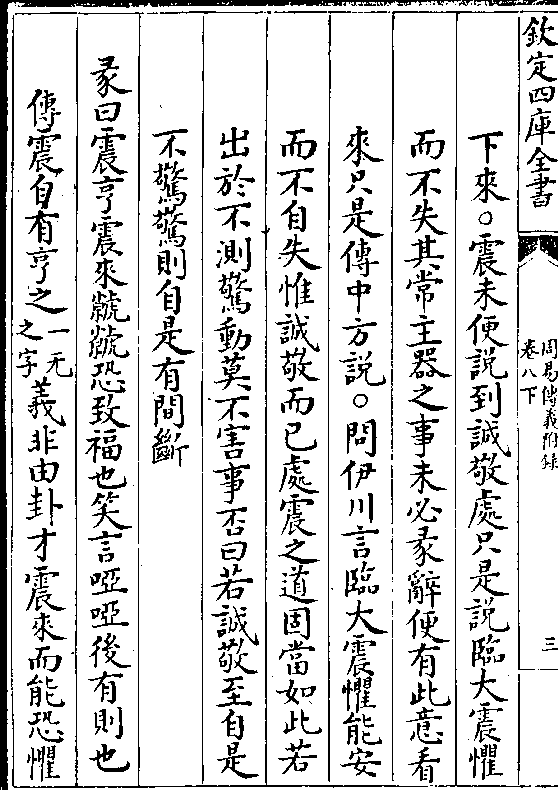 欽定四庫全書
周易傳義附錄
卷八下
三
下來○震未便說到誠敬處只是說臨大震懼
而不失其常主器之事未必彖辭便有此意看
來只是傳中方說○問伊川言臨大震懼能安
而不自失惟誠敬而已處震之道固當如此若
出於不測驚動莫不害事否曰若誠敬至自是
不驚驚則自是有間斷
彖曰震亨震來虩虩恐致福也笑言啞啞後有則也
傳震自有亨之一无之字義非由卦才震來而能恐懼